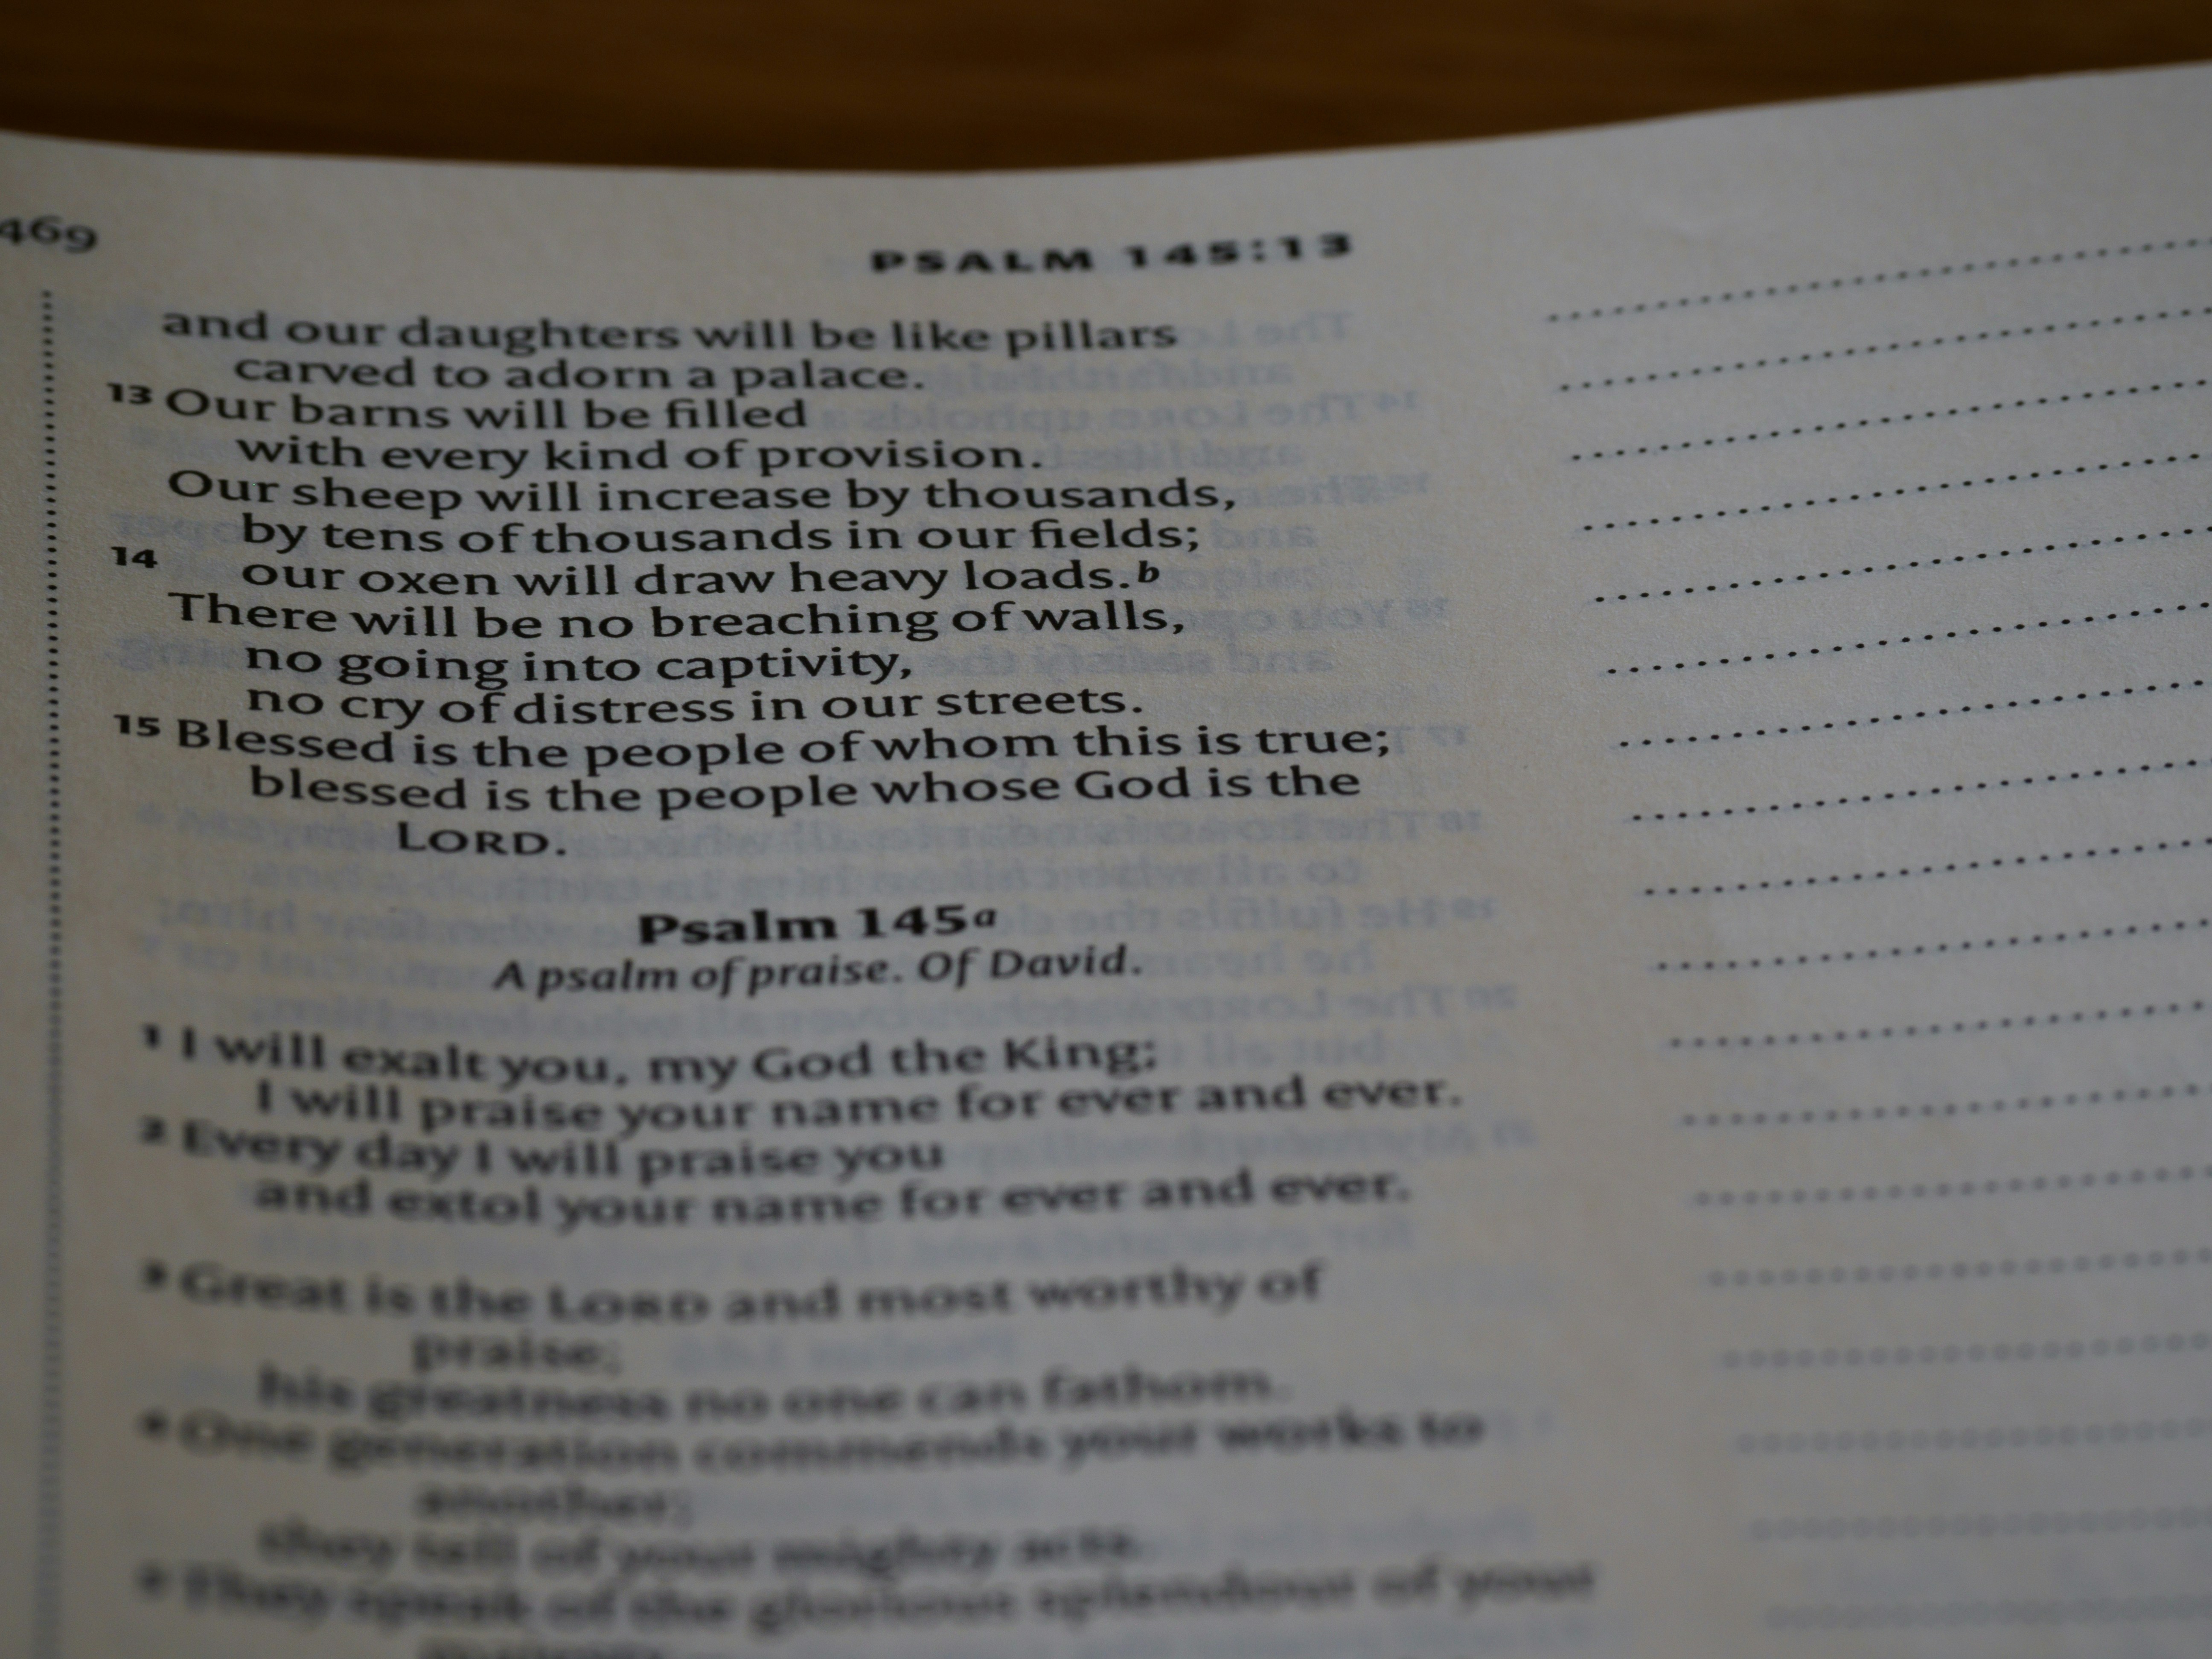 469
PSALM 145:13
and our daughters will be like pillars
carved to adorn a palace.
13 Our barns will be filled
with every kind of provision.
Our sheep will increase by thousands,
by tens of thousands in our fields;
14 our oxen will draw heavy loads.b
There will be no breaching of walls,
no going into captivity,
no cry of distress in our streets.
15 Blessed is the people of whom this is true;
blessed is the people whose God is the
LORD.
Psalm 145a
A psalm of praise. Of David.
1 I will exalt you, my God the King;
I will praise your name for ever and ever.
2 Every day I will praise you
and extol your name for ever and ever.
3 Great is the LORD and most worthy of
praise;
his greatness no one can fathom.
4 One generation commends your works to
another;
they tell of your mighty acts.
5 They speak of the glorious splendour of your